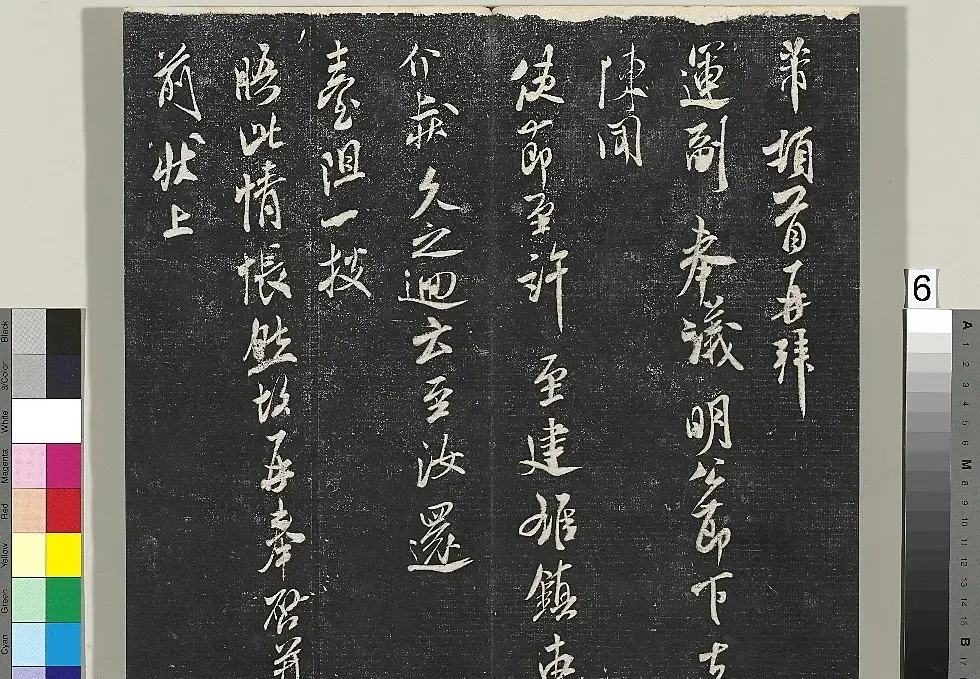 芾頓首再拜
運副 奉議 明公節下
陳聞
使節至許 至建雄鎮
介状久之迴云至汝還
臺阻一披
晤此情悵然故再奉啓并
前状上
6
Black
3/Color
White
Magenta
Red
Yellow
Green
Cyan
A
1
2
3
4
5
6
M
8
9
10
11
12
13
14
15
B
17